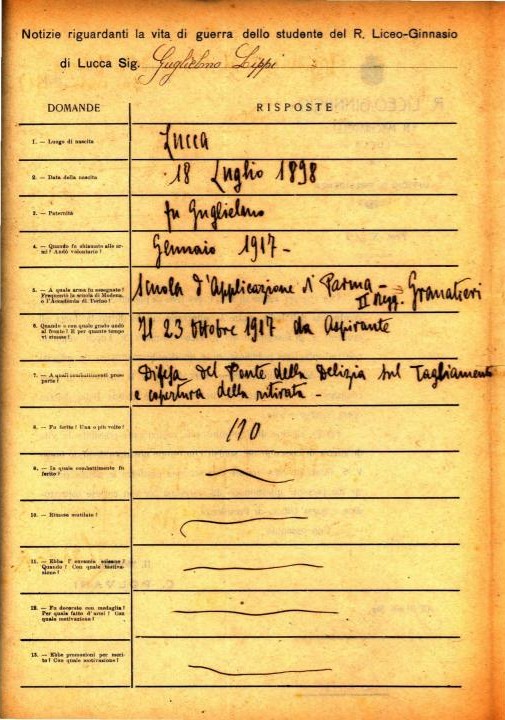 Notizie riguardanti la vita di guerra dello studente del R. Liceo-Ginnasio
di Lucca Sig. Guglielmo Lippi
DOMANDE RISPOSTE
1. — Luogo di nascita Lucca
2. — Data della nascita 18 Luglio 1898
3. — Paternità fu Guglielmo
4. — Quando fu chiamato alle armi? Andò volontario? Gennaio 1917 -
5. — A quale arma fu assegnato?
Frequentò la scuola di Modena,
o l'Accademia di Torino? Scuola d'Applicazione di Parma -
II Regg. Granatieri
6. Quando e con quale grado andò
al fronte? E per quanto tempo
vi rimase? Il 23 Ottobre 1917 da Aspirante
7. — A quali combattimenti prese
parte? Difesa del Ponte della Delizia sul Tagliamento
e copertura della ritirata -
8. — Fu ferito? Una o più volte?
9. — In quale combattimento fu
ferito?
10. — Rimase mutilato?
11. — Ebbe l'encomio solenne?
Quando? Con quale motiva-
zione?
12. — Fu decorato con medaglia?
Per quale fatto d'armi? Con
quale motivazione?
13. — Ebbe promozioni per meri-
to? Con quale motivazione?